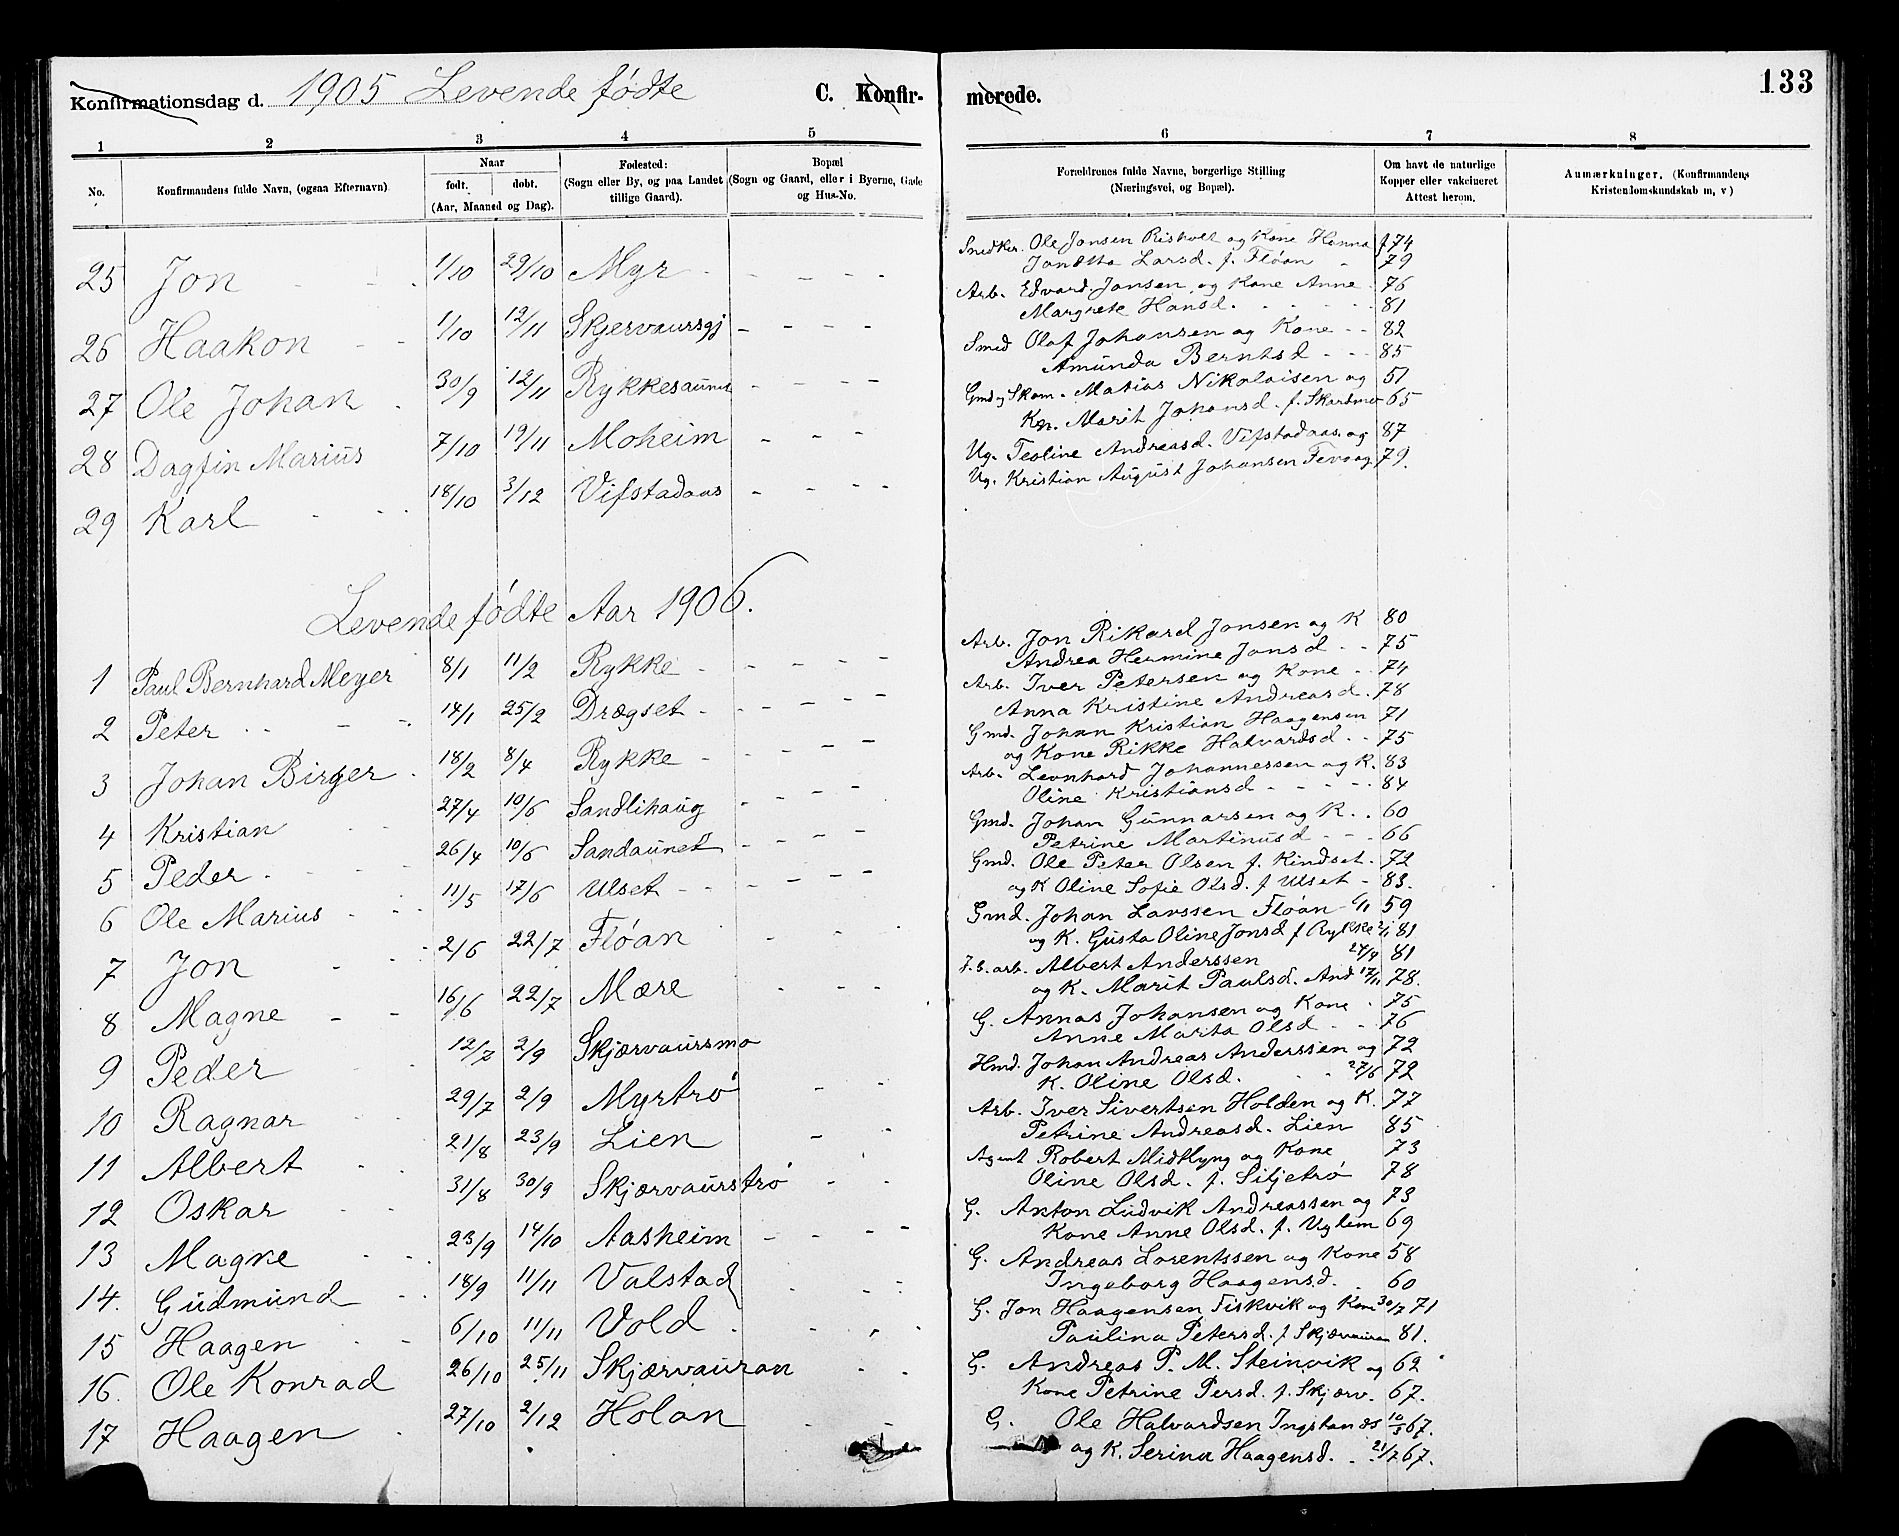 Konfirmationsdag d. 1905 Levende fødte C. Konfir- merede. 133
1 2 3 4 5 6 7 8
No. Konfirmandens fulde Navn, (ogsaa Efternavn) Naar født. døbt. (Aar, Maaned og Dag). Fødested: (Sogn eller By, og paa Landet tillige Gaard). Bopæl (Sogn og Gaard, eller i Byerne, Gade og Hus-No. Forældrenes fulde Navne, borgerlige Stilling (Næringsvei, og Bopæl). Om havt de naturlige Kopper eller vakcineret Attest herom. Anmærkninger. (Konfirmandens Kristendomskundskab m, v)
25 Jon 1/10 29/10 Myr Snedker. Ole Jonsen Risholt og Kone Hanna f 74
Jondtta Larsd. f. Fløan 79
26 Haakon 1/10 12/11 Skjervaursgj Arb. Edvard Jansen og Kone Anne 76
Margrete Hansd. 81
27 Ole Johan 30/9 12/11 Rykkesaunet Smed Olaf Johansen og Kone 82
Amunda Berntsd 85
28 Dagfin Marius 7/10 19/11 Moheim Gmd og Skom. Matias Nikolaisen og 51
Kn. Marit Johansd. f. Skardmo 65
29 Karl 18/10 3/12 Vifstadaas Ug. Teoline Andreasd. Vifstadaas og 87
Ug. Kristian August Johansen Fevaag 79.
Levende fødte Aar 1906.
1 Paul Bernhard Meyer 8/1 11/2 Rykke Arb. Jon Rikard Jonsen og K 80
Andrea Hermine Jonsd 75
2 Peter 14/1 25/2 Drøgset Arb. Iver Petersen og Kone 74
Anna Kristine Andreasd. 78
3 Johan Birger 18/2 8/4 Rykke Gmd. Johan Kristian Haagensen 71
og Kone Rikke Halvardsd 75
4 Kristian 27/4 10/6 Sandlihaug Arb. Leonhard Johannessen og K. 83
Oline Kristiansd 84
5 Peder 26/4 10/6 Sandaunet Gmd. Johan Gunnarsen og K. 60
Petrine Martinusd 66
6 Ole Marius 11/5 17/6 Ulset Gmd. Ole Peter Olsen f. Kindset 72
og K Oline Sofie Olsd. f Ulset 83.
7 Jon 2/6 22/7 Fløan Gmd. Johan Larssen Fløan 6/11 59
og K. Gusta Oline Jonsd f Rykke 2/1 81
8 Magne 16/6 22/7 Mære J.b. arb. Albert Anderssen 24/4 81
og K. Marit Paulsd. And 17/11 78.
9 Peder 12/7 2/9 Skjærvaursmo G. Annas Johansen og Kone 75
Anne Marta Olsd 76
10 Ragnar 29/7 2/9 Myrtrø Hmd. Johan Andreas Anderssen og 72
K. Oline Olsd. 27/6 72
11 Albert 21/8 23/9 Lien Arb. Iver Sivertsen Holden og K. 77
Petrine Andreasd. Lien 85
12 Oskar 31/8 30/9 Skjærvaurstrø Agent Robert Midtlyng og Kone 73
Oline Olsd. f. Siljetrø 78
13 Magne 23/9 14/10 Aasheim G. Anton Ludvik Andreassen og 73
Kone Anne Olsd. f. Uglem 69
14. Gudmund 18/9 11/11 Valstad G. Andreas Lorentssen og Kone 58
Ingeborg Haagensd. 60
15 Haagen 6/10 11/11 Vold G. Jon Haagensen Fiskvik og Kone 30/7 71
Paulina Petersd. f. Skjærvauran 81.
16. Ole Konrad 26/10 25/11 Skjærvauran G. Andreas P. M. Steinvik og 62
Kone Petrine Persd. f. Skjærv. 67.
17 Haagen 27/10 2/12 Holan G. Ole Halvardsen Ingstanæs 10/3 67.
og K. Serina Haagensd. 21/7 67.